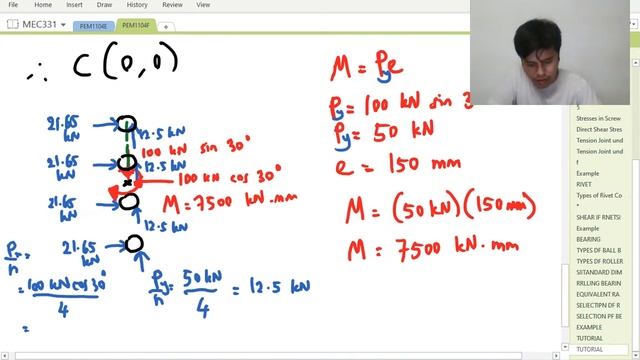 File Home Insert Draw History Review View
MEC331 PEM1104E PEM1104F
∴ C (0,0)
M = Pye
Py = 100 kN sin 3
Py = 50 kN
e = 150 mm
M = (50 kN)(150 mm)
M = 7500 kN·mm
21.65 kN
12.5 kN
100 kN sin 30°
21.65 kN
12.5 kN
100 kN cos 30°
21.65 kN
M = 7500 kN·mm
12.5 kN
21.65 kN
= 100 kN cos 30° / 4
=
Py/n = 50 kN / 4 = 12.5 kN
5
Stresses in Screw
Direct Shear Stres
Tension Joint und
Tension Joint und
f
Example
RIVET
Types of Rivet Co
*
SHEAR IF RNETSI
Example
BEARING
TYPES DF BALL B
TYPES DF ROLLER
SITANDARD DIM
RRLLING BEARIN
EQUIVALENT RA
SELIECTIPN DF R
SELECTION PF BE
EXAMPLE
TUTORIAL
TUTORIAL